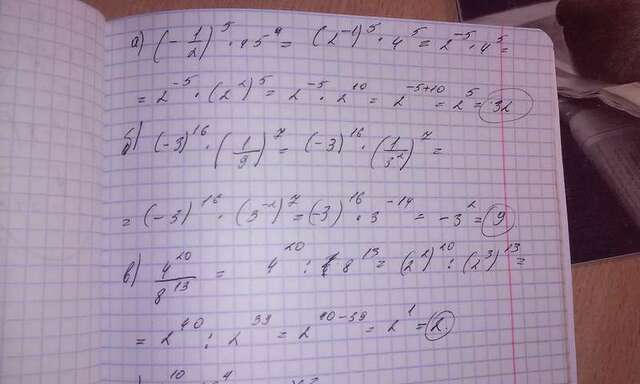 а) (-1/2)^5 · 4^5 = (2^-1)^5 · 4^5 = 2^-5 · 4^5 =
= 2^-5 · (2^2)^5 = 2^-5 · 2^10 = 2^-5+10 = 2^5 = 32
б) (-3)^16 · (1/9)^7 = (-3)^16 · (1/3^2)^7 =
= (-3)^16 · (3^-2)^7 = (-3)^16 · 3^-14 = -3^2 = 9
в) 4^20/8^13 = 4^20 : 8^13 = (2^2)^20 : (2^3)^13 =
= 2^40 : 2^39 = 2^40-39 = 2^1 = 2